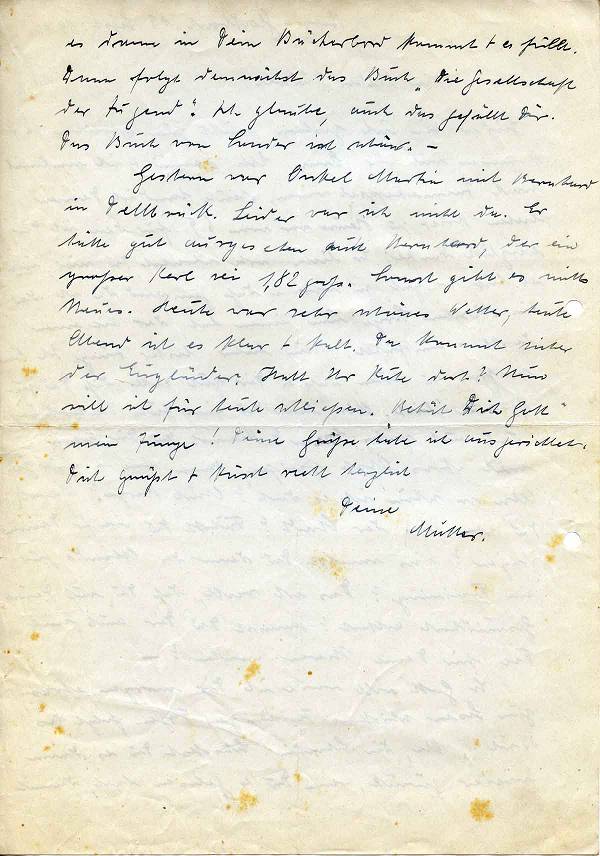 es dann in Dein Bücherbord kommt + es füllt.
Dann folgt demnächst das Buch „Die Gesellschaft
der Jugend". Ich glaube, auch das gefällt Dir.
Das Buch von Sander ist schön. –
Gestern war Onkel Martin mit Bernhard
in Dellbrück. Leider war ich nicht da. Er
hätte gut ausgesehen auch Bernhard, der ein
grosser Kerl sei 1,82 groß. Sonst gibt es nichts
Neues. Heute war sehr schönes Wetter, heute
Abend ist es klar + kalt. Da kommt sicher
der Engländer. Habt Ihr Ruhe dort? Nun
will ich für heute schliessen. Behüt Dich Gott
mein Junge! Deine Grüße habe ich ausgerichtet.
Dich grüßt + küsst recht herzlich
Deine
Mutter.